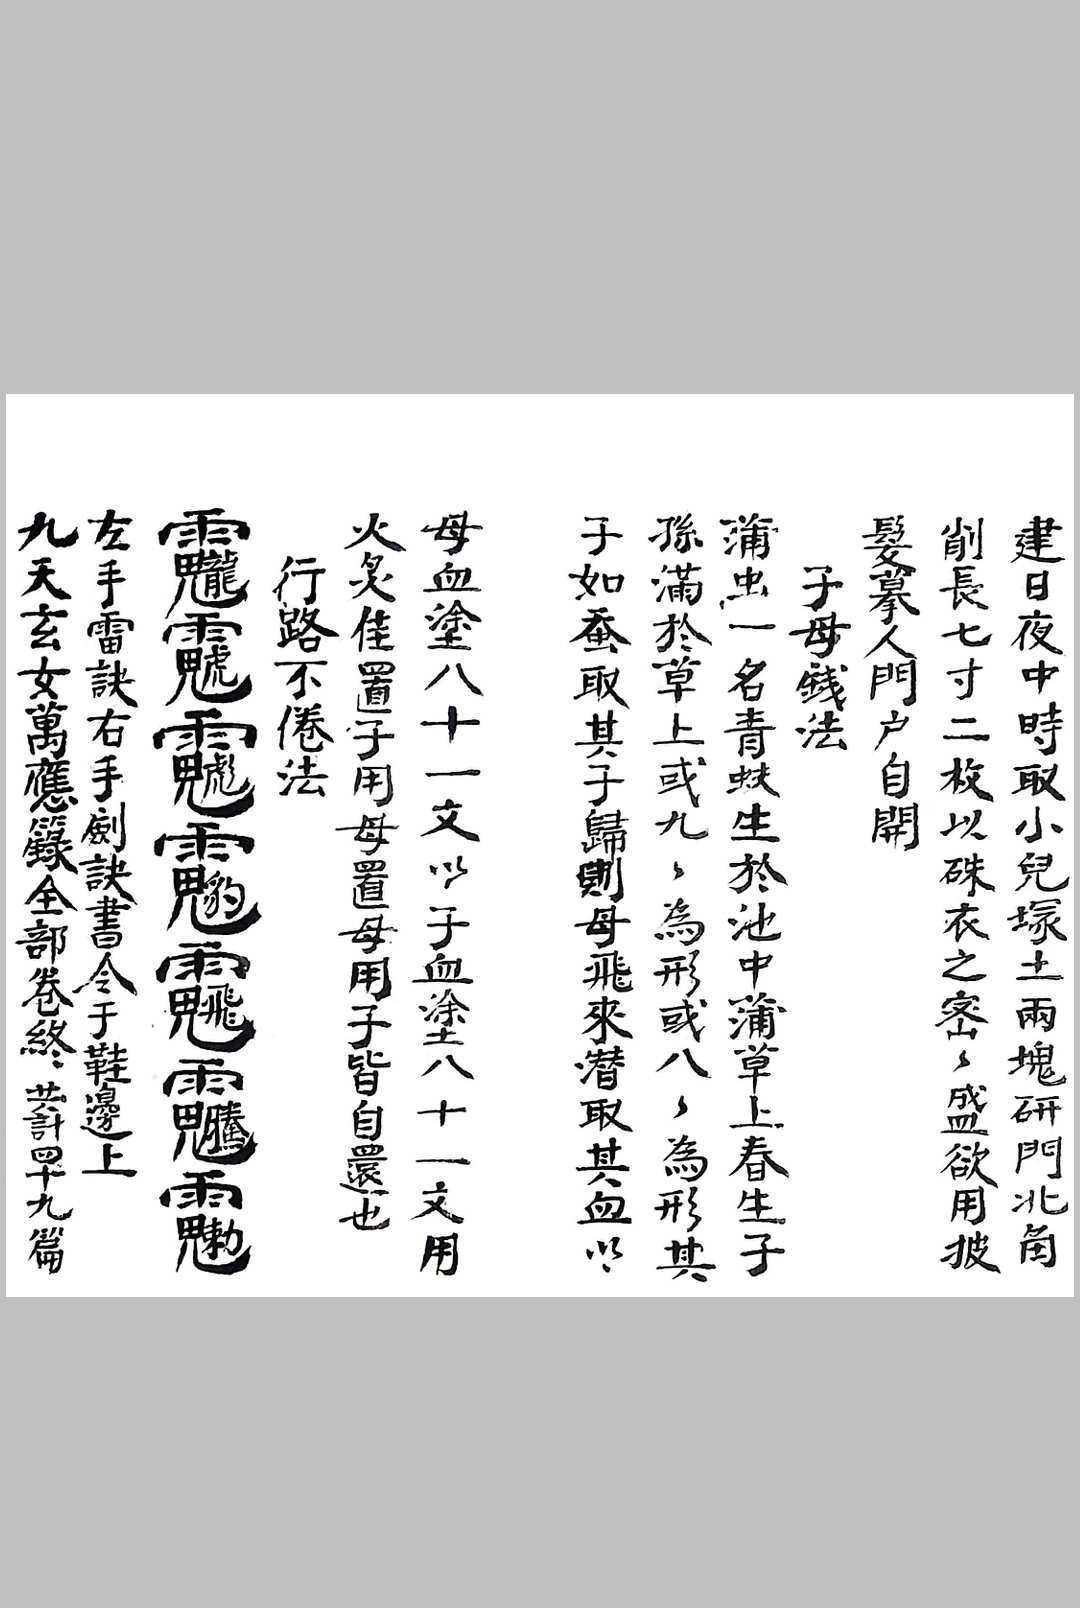 建日夜中時取小兒塚土兩塊研門北角
削長七寸二枚以硃衣之密〻盛欲用披
髮摹人門户自開
子母錢法
蒲虫一名青蚨生於池中蒲草上春生子
孫滿於草上或九〻為形或八〻為形其
子如蚕取其子歸則母飛來潛取其血以〻
母血塗八十一文以子血塗八十一文用
火炙佳置子用母置母用子皆自還也
行路不倦法
左手雷訣右手劍訣書令于鞋邊上
九天玄女萬應籙全部卷終〻共計四十九篇